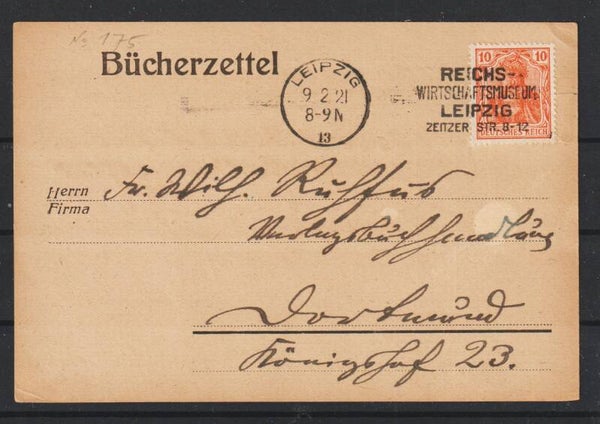 No 175
Bücherzettel
LEIPZIG
9.2.21
8-9 N
13
REICHS-
WIRTSCHAFTSMUSEUM
LEIPZIG
ZEITZER STR. 8-12
10 10
DEUTSCHES REICH
Herrn
Firma
Fr. Wilh. Ruhfus
Verlagsbuchhandlung
Dortmund
Königshof 23.